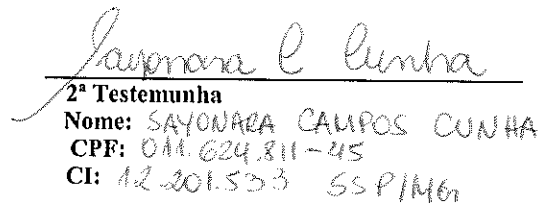 Sayonara C Cunha
2ª Testemunha
Nome: SAYONARA CAMPOS CUNHA
CPF: 011.624.811-45
CI: 12.201.533 SSP/MG